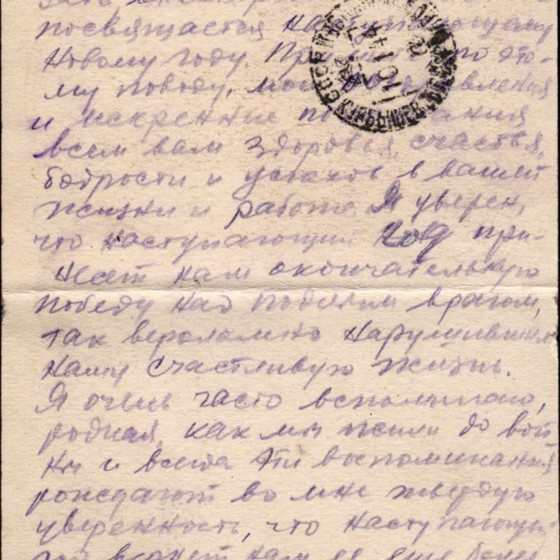 посвящается наступающему
Новому году. Примите по это-
му поводу, мои поздравления
и искренние пожелания
всем вам здоровья, счастья,
бодрости и успехов в вашей
жизни и работе. Я уверен,
что наступающий год при-
несёт нам окончательную
победу над подлым врагом,
так вероломно нарушившим
нашу счастливую жизнь.
Я очень часто вспоминаю,
родная, как мы жили до вой-
ны и всегда эти воспоминания
рождают во мне твердую
уверенность, что наступающ
год вернет нам ее еще более